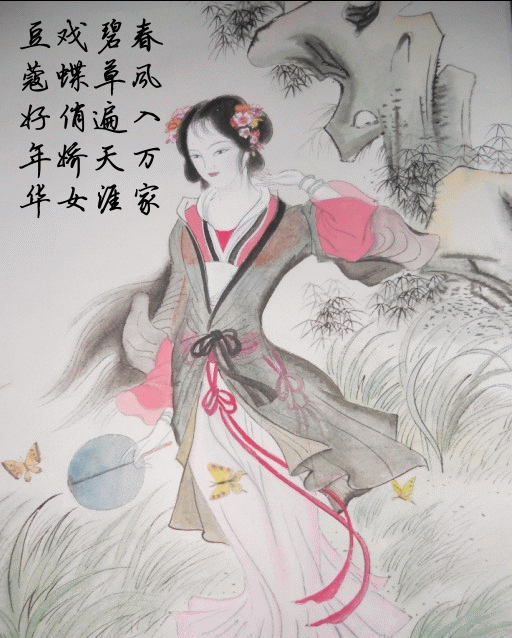 春风入万家
碧草遍天涯
戏蝶俏娇女
豆蔻好年华